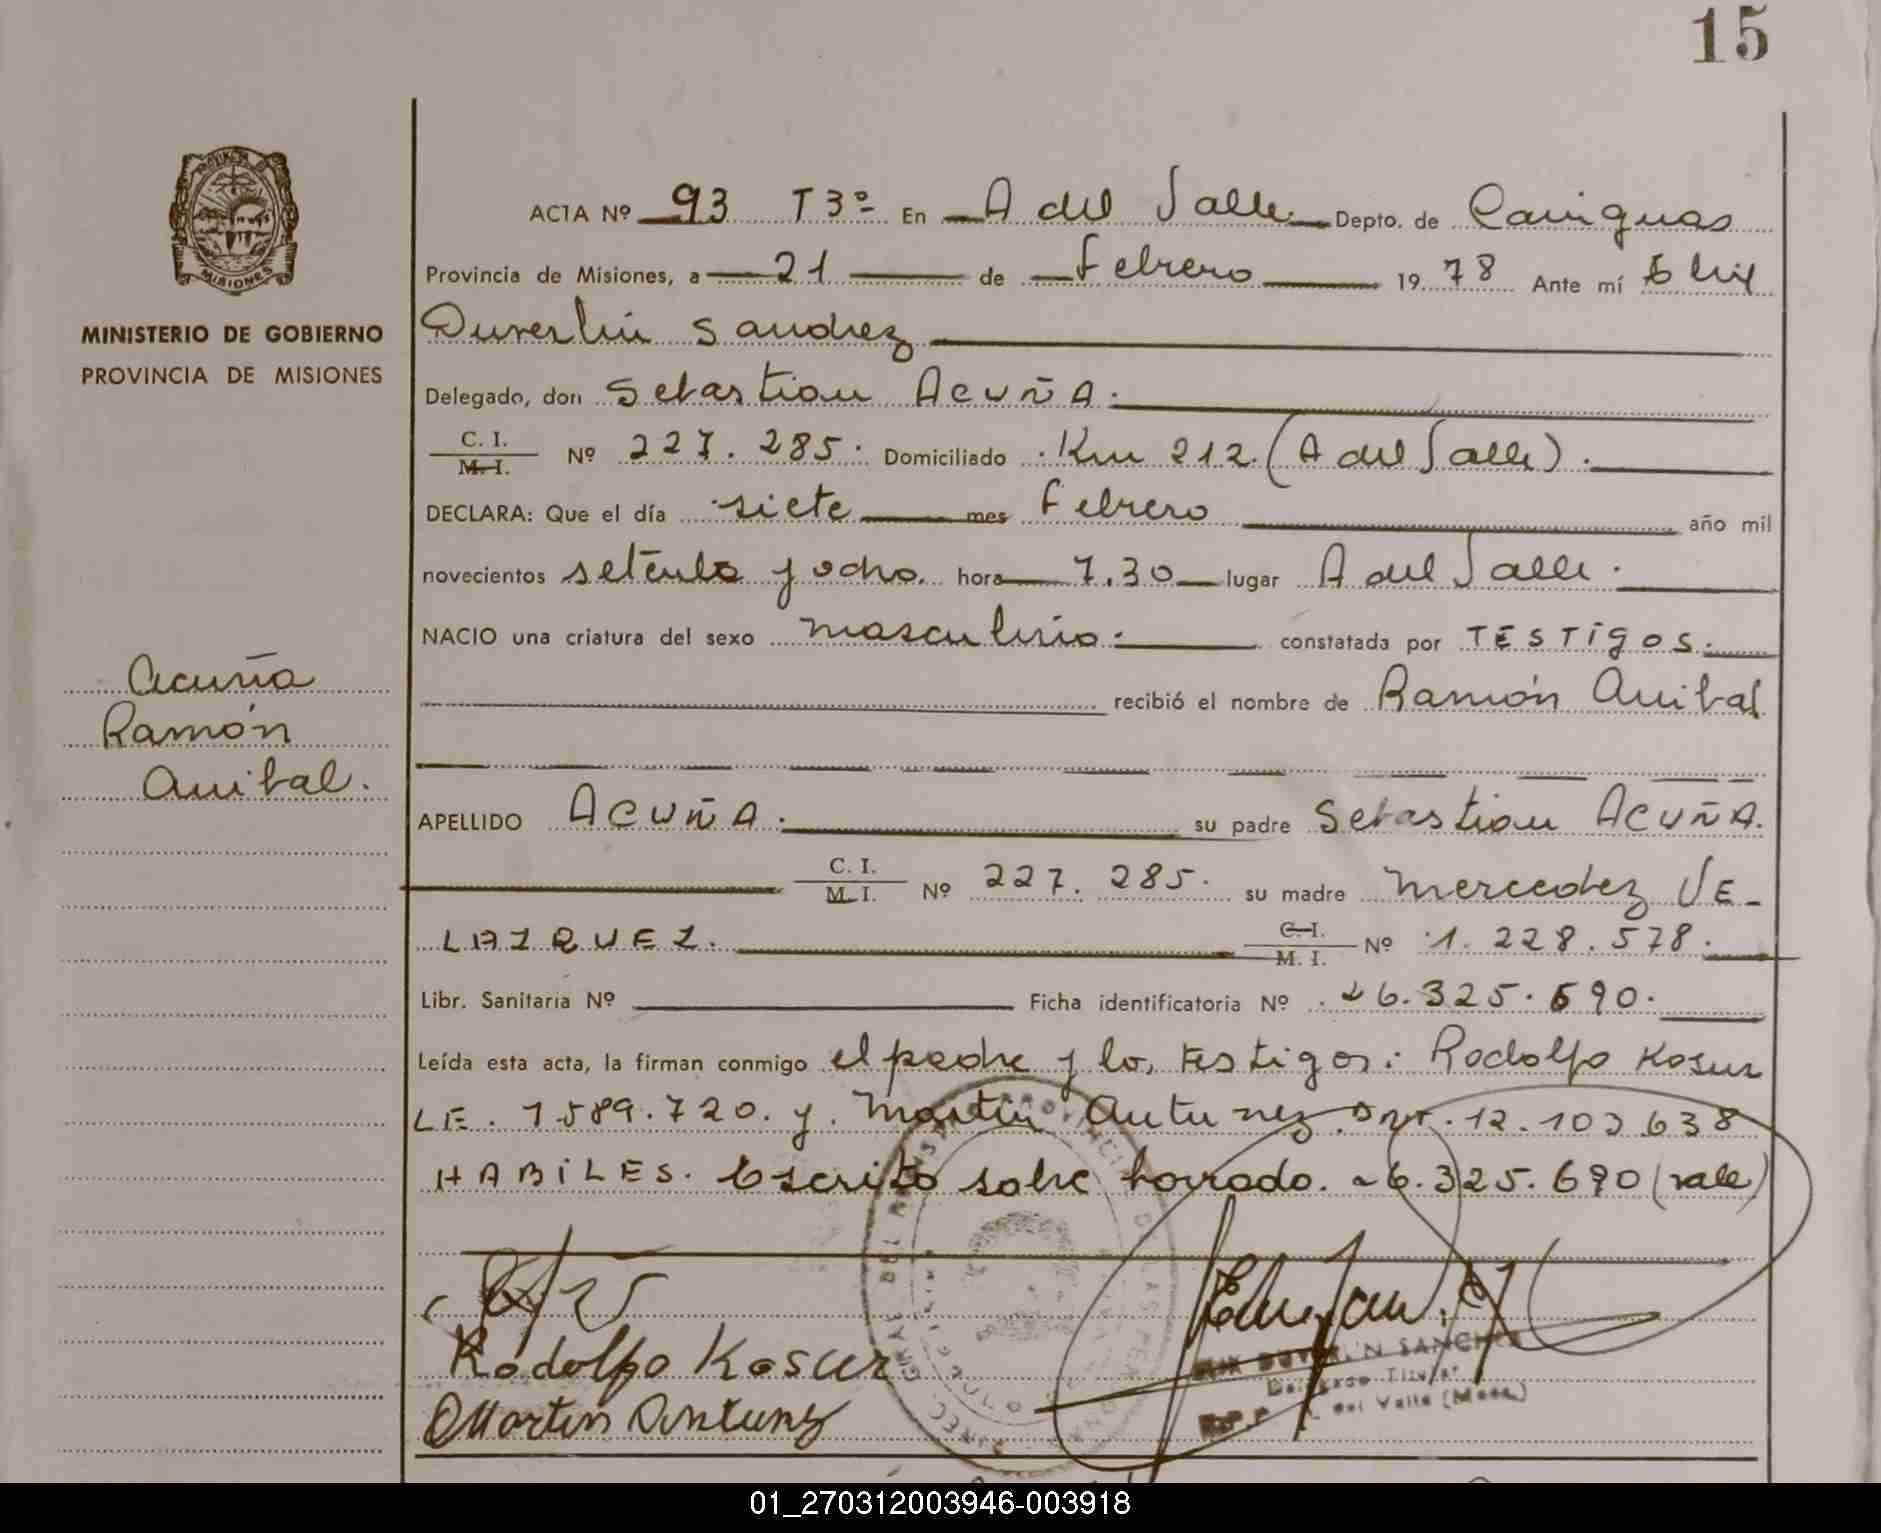 15
MISIONES
MINISTERIO DE GOBIERNO
PROVINCIA DE MISIONES
Acuña
Ramón
Anibal.
ACTA Nº 93 T3º En A del Valle Depto. de Cainguas
Provincia de Misiones, a 21 de Febrero 1978 Ante mí Elix
Duverlin Sanchez
Delegado, don Sebastian ACUÑA.
C. I. / M. I. Nº 227.285. Domiciliado Km 212 (A del Valle).
DECLARA: Que el día siete mes Febrero año mil
novecientos setenta y ocho hora 7,30 lugar A del Valle.
NACIO una criatura del sexo masculino. constatada por TESTIGOS.
recibió el nombre de Ramón Anibal
APELLIDO ACUÑA. su padre Sebastian ACUÑA.
C. I. / M. I. Nº 227.285. su madre Mercedez VE-
LAZQUEZ. C. I. / M. I. Nº 1.228.578.
Libr. Sanitaria Nº Ficha identificatoria Nº 26.325.690.
Leída esta acta, la firman conmigo el padre y los testigos: Rodolfo Kosur
LE. 1589.720. y Martin Antunez DNI. 12.103.638
HABILES. Escrito sobre borrado. 26.325.690 (vale)
Rodolfo Kosur
Martin Antunez
DUVERLIN SANCHEZ
Delegado Titular
del Valle (Mnes.)
01_270312003946-003918